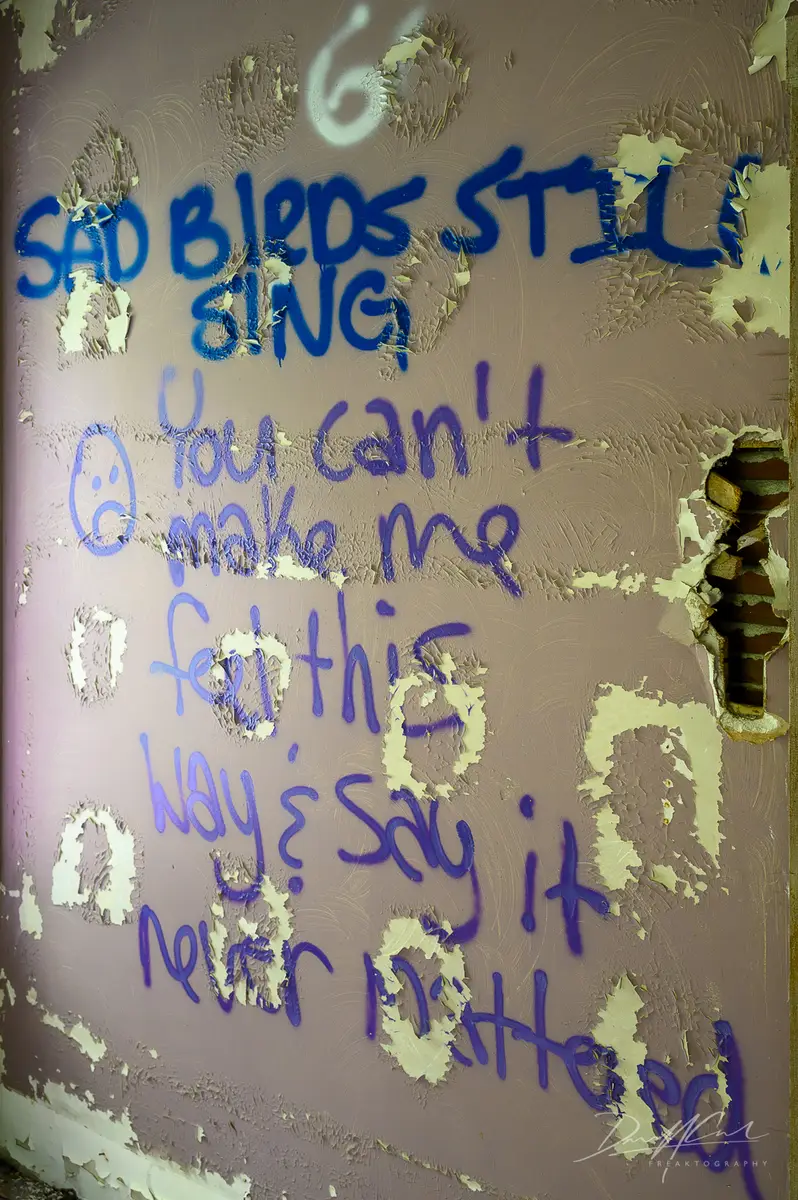 6
SAD BIRDS STILL
SING
You can't
make me
feel this
way & say it
never mattered
FREAKTOGRAPHY